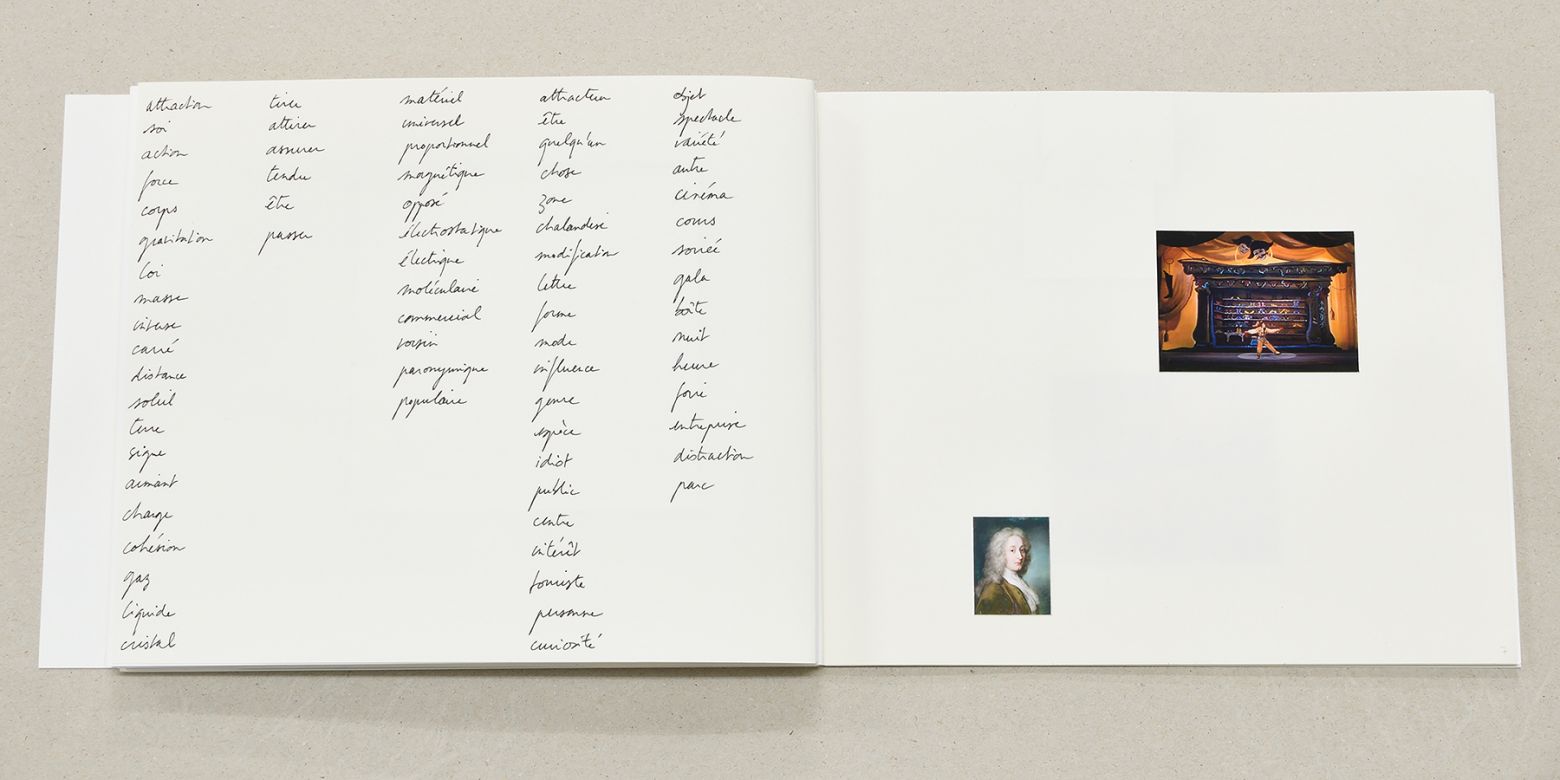 attraction
soi
action
force
corps
gravitation
loi
masse
inverse
carré
distance
soleil
terre
signe
aimant
charge
cohésion
gaz
liquide
cristal
tirer
attirer
assurer
tendre
être
passer
matériel
universel
proportionnel
magnétique
opposé
électrostatique
électrique
moléculaire
commercial
voisin
paronymique
populaire
attracteur
être
quelqu'un
chose
zone
chalandise
modification
lettre
forme
mode
influence
genre
espèce
idiot
public
centre
intérêt
touriste
personne
curiosité
objet
spectacle
variété
autre
cinéma
cours
soirée
gala
boîte
nuit
heure
foire
entreprise
distraction
parc